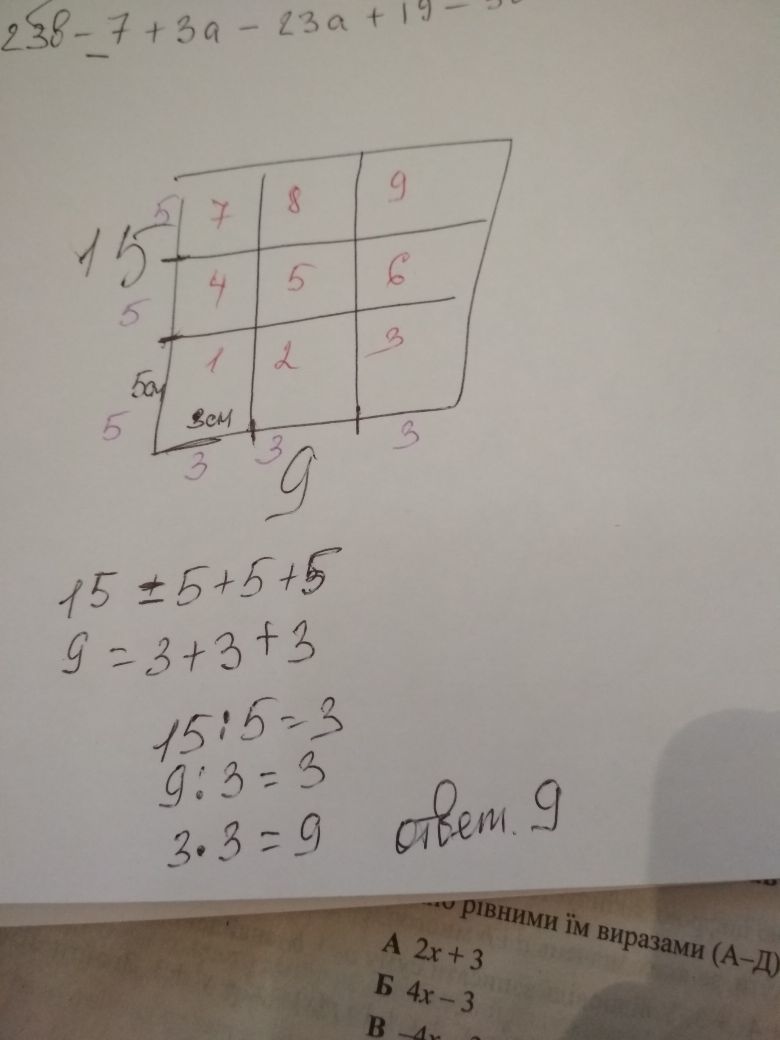 23в - 7 + 3а - 23а + 19 -
5 7 8 9
15
4 5 6
5
1 2 3
5см
5 3см
3 3 3
9
15 = 5 + 5 + 5
9 = 3 + 3 + 3
15 : 5 = 3
9 : 3 = 3
3 · 3 = 9 ответ. 9
рівними їм виразами (А–Д)
А 2x + 3
Б 4x – 3
В –4x